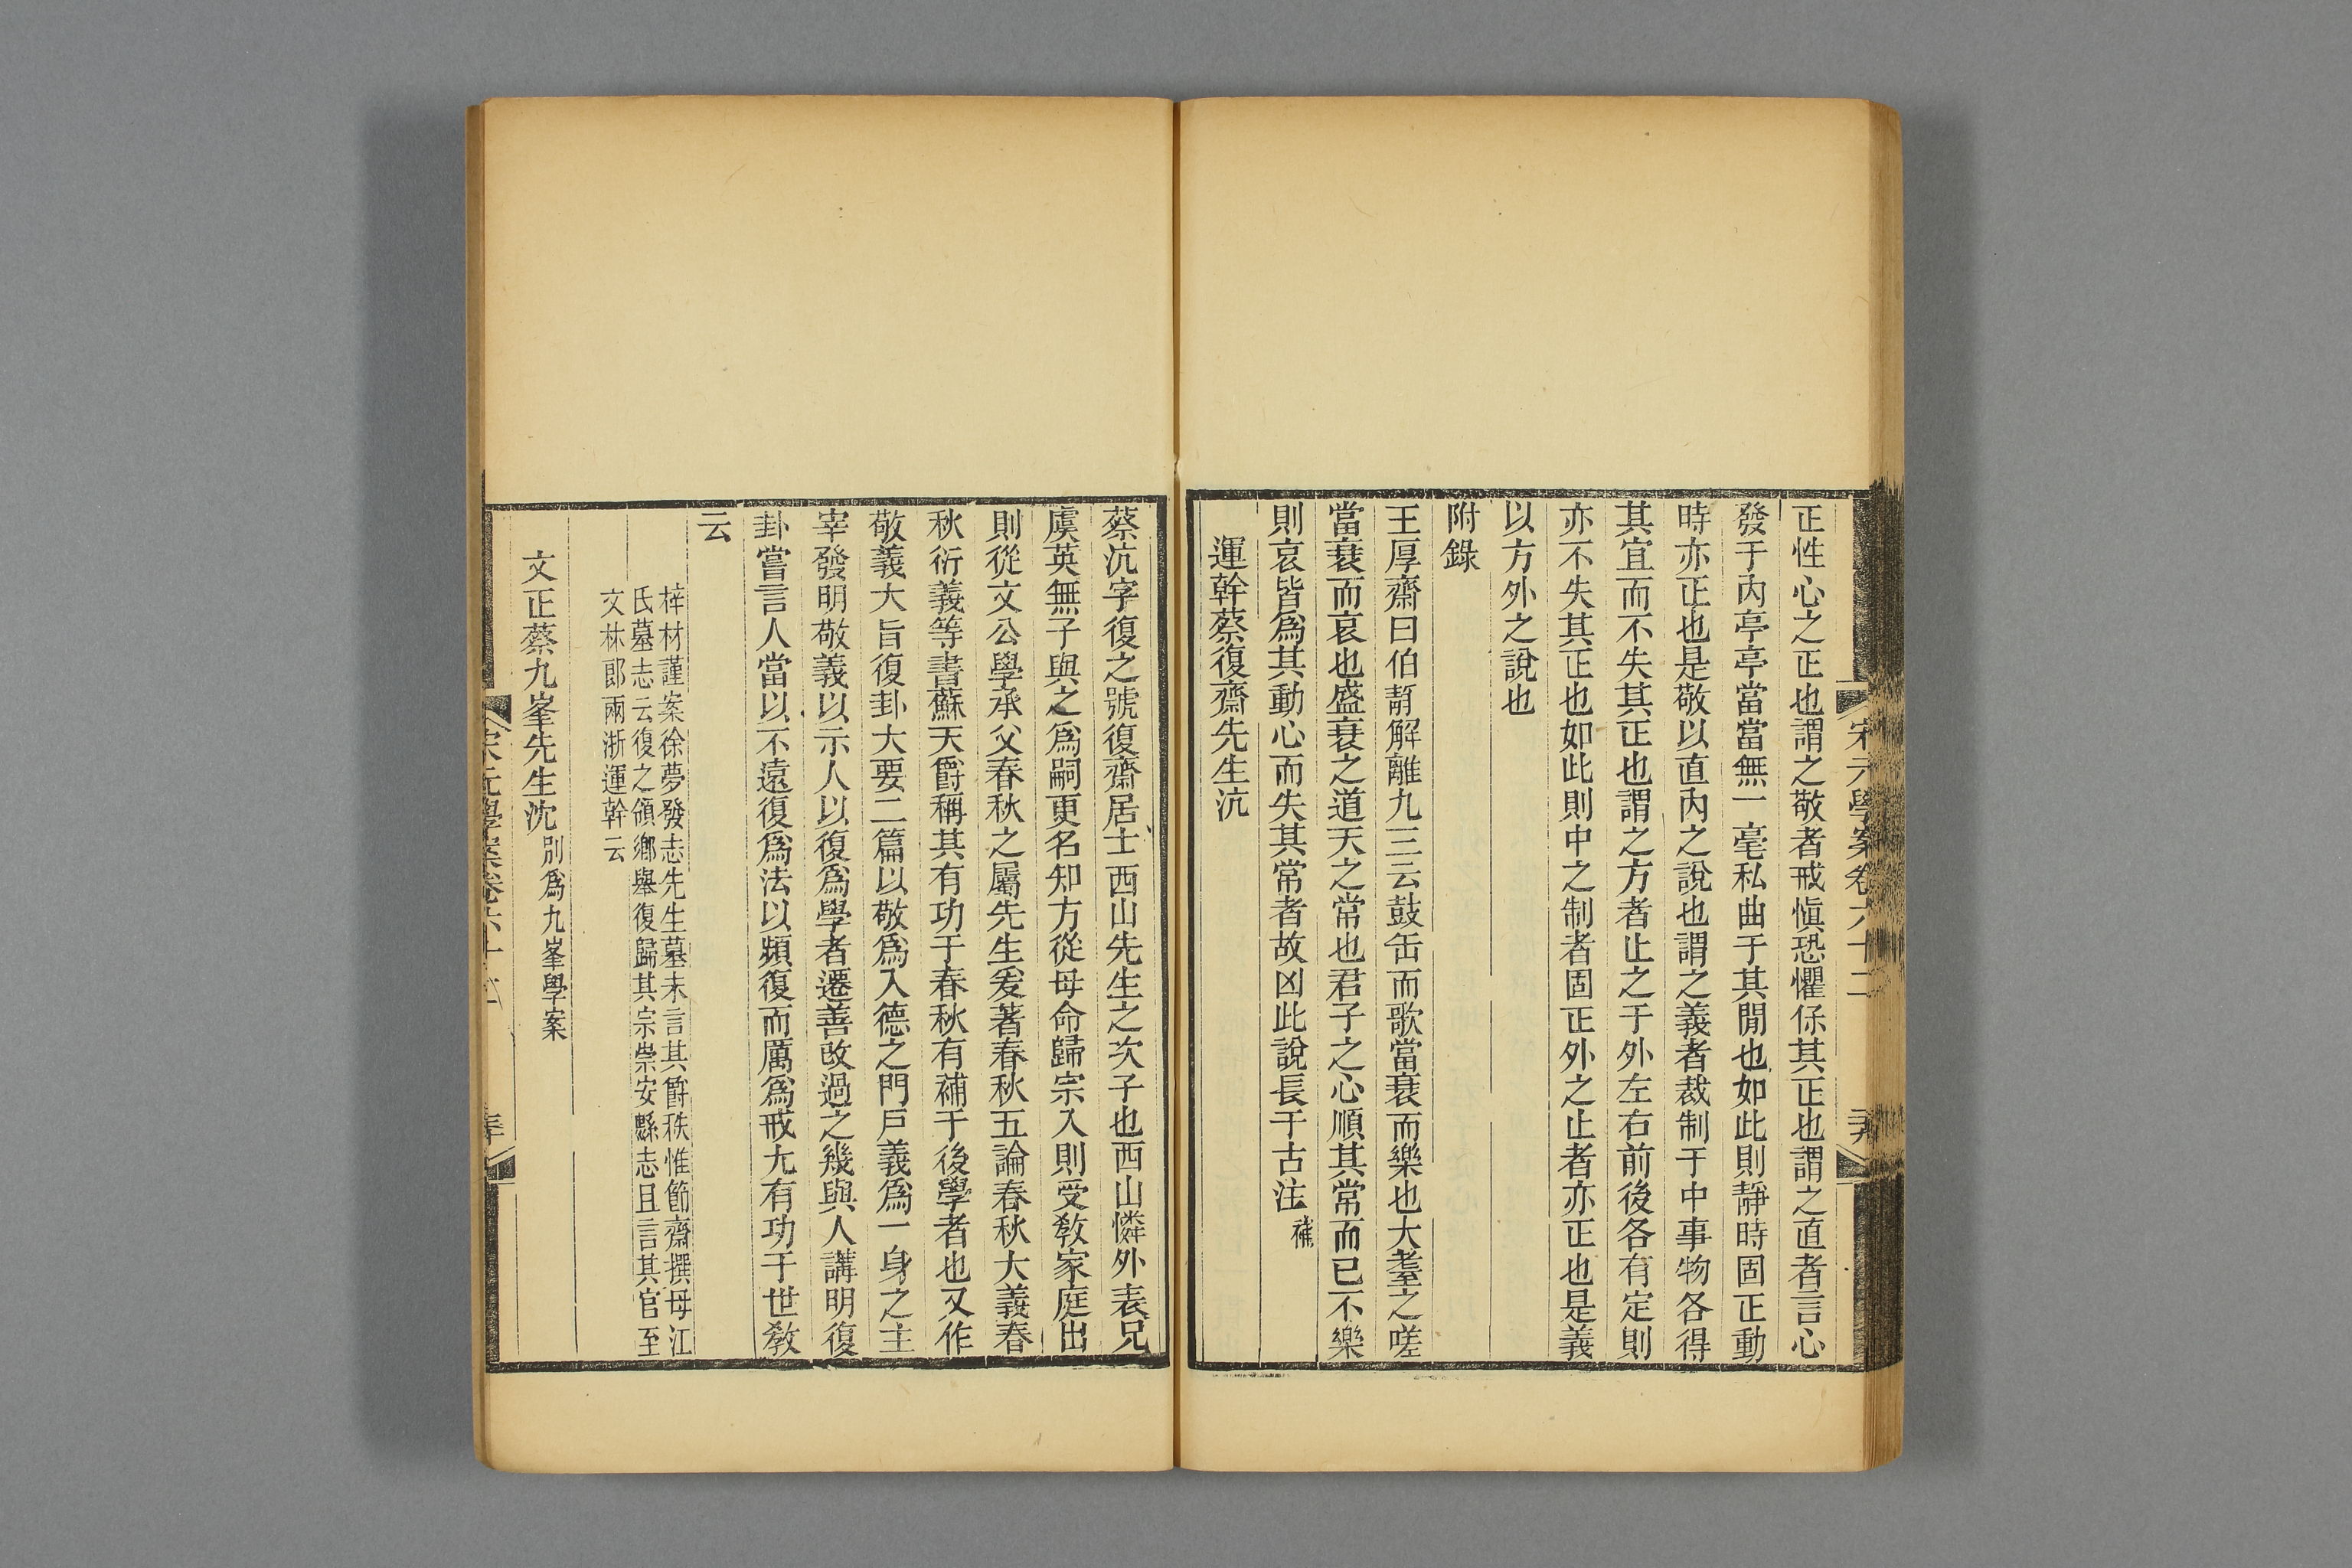 宋元學案卷六十二
正性心之正也謂之敬者戒愼恐懼係其正也謂之直者言心
發于內亭亭當當無一毫私曲于其閒也如此則靜時固正動
時亦正也是敬以直內之說也謂之義者裁制于中事物各得
其宜而不失其正也謂之方者止之于外左右前後各有定則
亦不失其正也如此則中之制者固正外之止者亦正也是義
以方外之說也
附錄
王厚齋曰伯靜解離九三云鼓缶而歌當衰而樂也大耋之嗟
當衰而哀也盛衰之道天之常也君子之心順其常而已不樂
則哀皆爲其動心而失其常者故凶此說長于古注補
運幹蔡復齋先生沆
蔡沆字復之號復齋居士西山先生之次子也西山憐外表兄
虞英無子與之爲嗣更名知方從母命歸宗入則受敎家庭出
則從文公學承父春秋之屬先生爰著春秋五論春秋大義春
秋衍義等書蘇天爵稱其有功于春秋有補于後學者也又作
敬義大旨復卦大要二篇以敬爲入德之門戶義爲一身之主
宰發明敬義以示人以復爲學者遷善改過之幾與人講明復
卦嘗言人當以不遠復爲法以頻復而厲爲戒尢有功于世敎
云
梓材謹案徐夢發志先生墓未言其爵秩惟節齋撰母江
氏墓志云復之領鄉舉復歸其宗崇安縣志且言其官至
文林郎兩浙運幹云
文正蔡九峯先生沈別爲九峯學案
宋元學案卷六十二